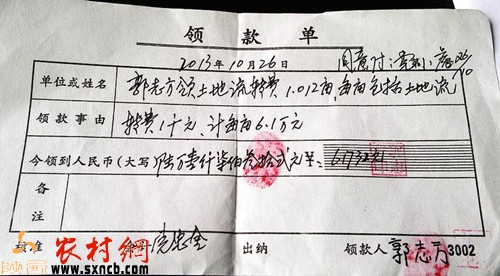 领款单
2013年10月26日
同意付
单位或姓名 郭志方领土地流转费1.012亩,每亩包括土地流
领款事由 转费1千元、计每亩6.1万元
今领到人民币(大写 陆万壹仟柒佰叁拾贰元 ¥: 61732元
备注
核准 会计 出纳 领款人 郭志方 3002
农村網
www.sxncb.com